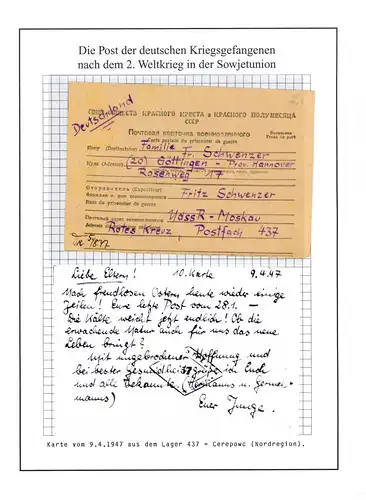 Die Post der deutschen Kriegsgefangenen
nach dem 2. Weltkrieg in der Sowjetunion
Deutschland
СОЮЗ ОБЩЕСТВ КРАСНОГО КРЕСТА и КРАСНОГО ПОЛУМЕСЯЦА
СССР
Почтовая карточка военнопленного
Carte postale du prisonnier de guerre
Кому (Destinataire) Familie Fr. Schwenzer
Куда (Adresse) (20) Göttingen - Prov. Hannover
Rosenweg 17
Отправитель (Expéditeur)
Фамилия и имя военнопленного Fritz Schwenzer
Nom du prisonnier de guerre
Почтовый адрес военнопленного UdSSR - Moskau
Rotes Kreuz Postfach 437
Liebe Eltern! 10. Karte 9.4.47
Nach freudlosen Ostern heute wieder einige
Zeilen! Eure letzte Post vom 28.1. -
Die Kälte weicht jetzt endlich! Ob die
erwachende Natur auch für uns das neue
Leben bringt?
Mit ungebrochener Hoffnung und
bei bester Gesundheit grüße ich Euch
und alle Bekannte
Euer Junge.
Karte vom 9.4.1947 aus dem Lager 437 = Cerepowc (Nordregion).